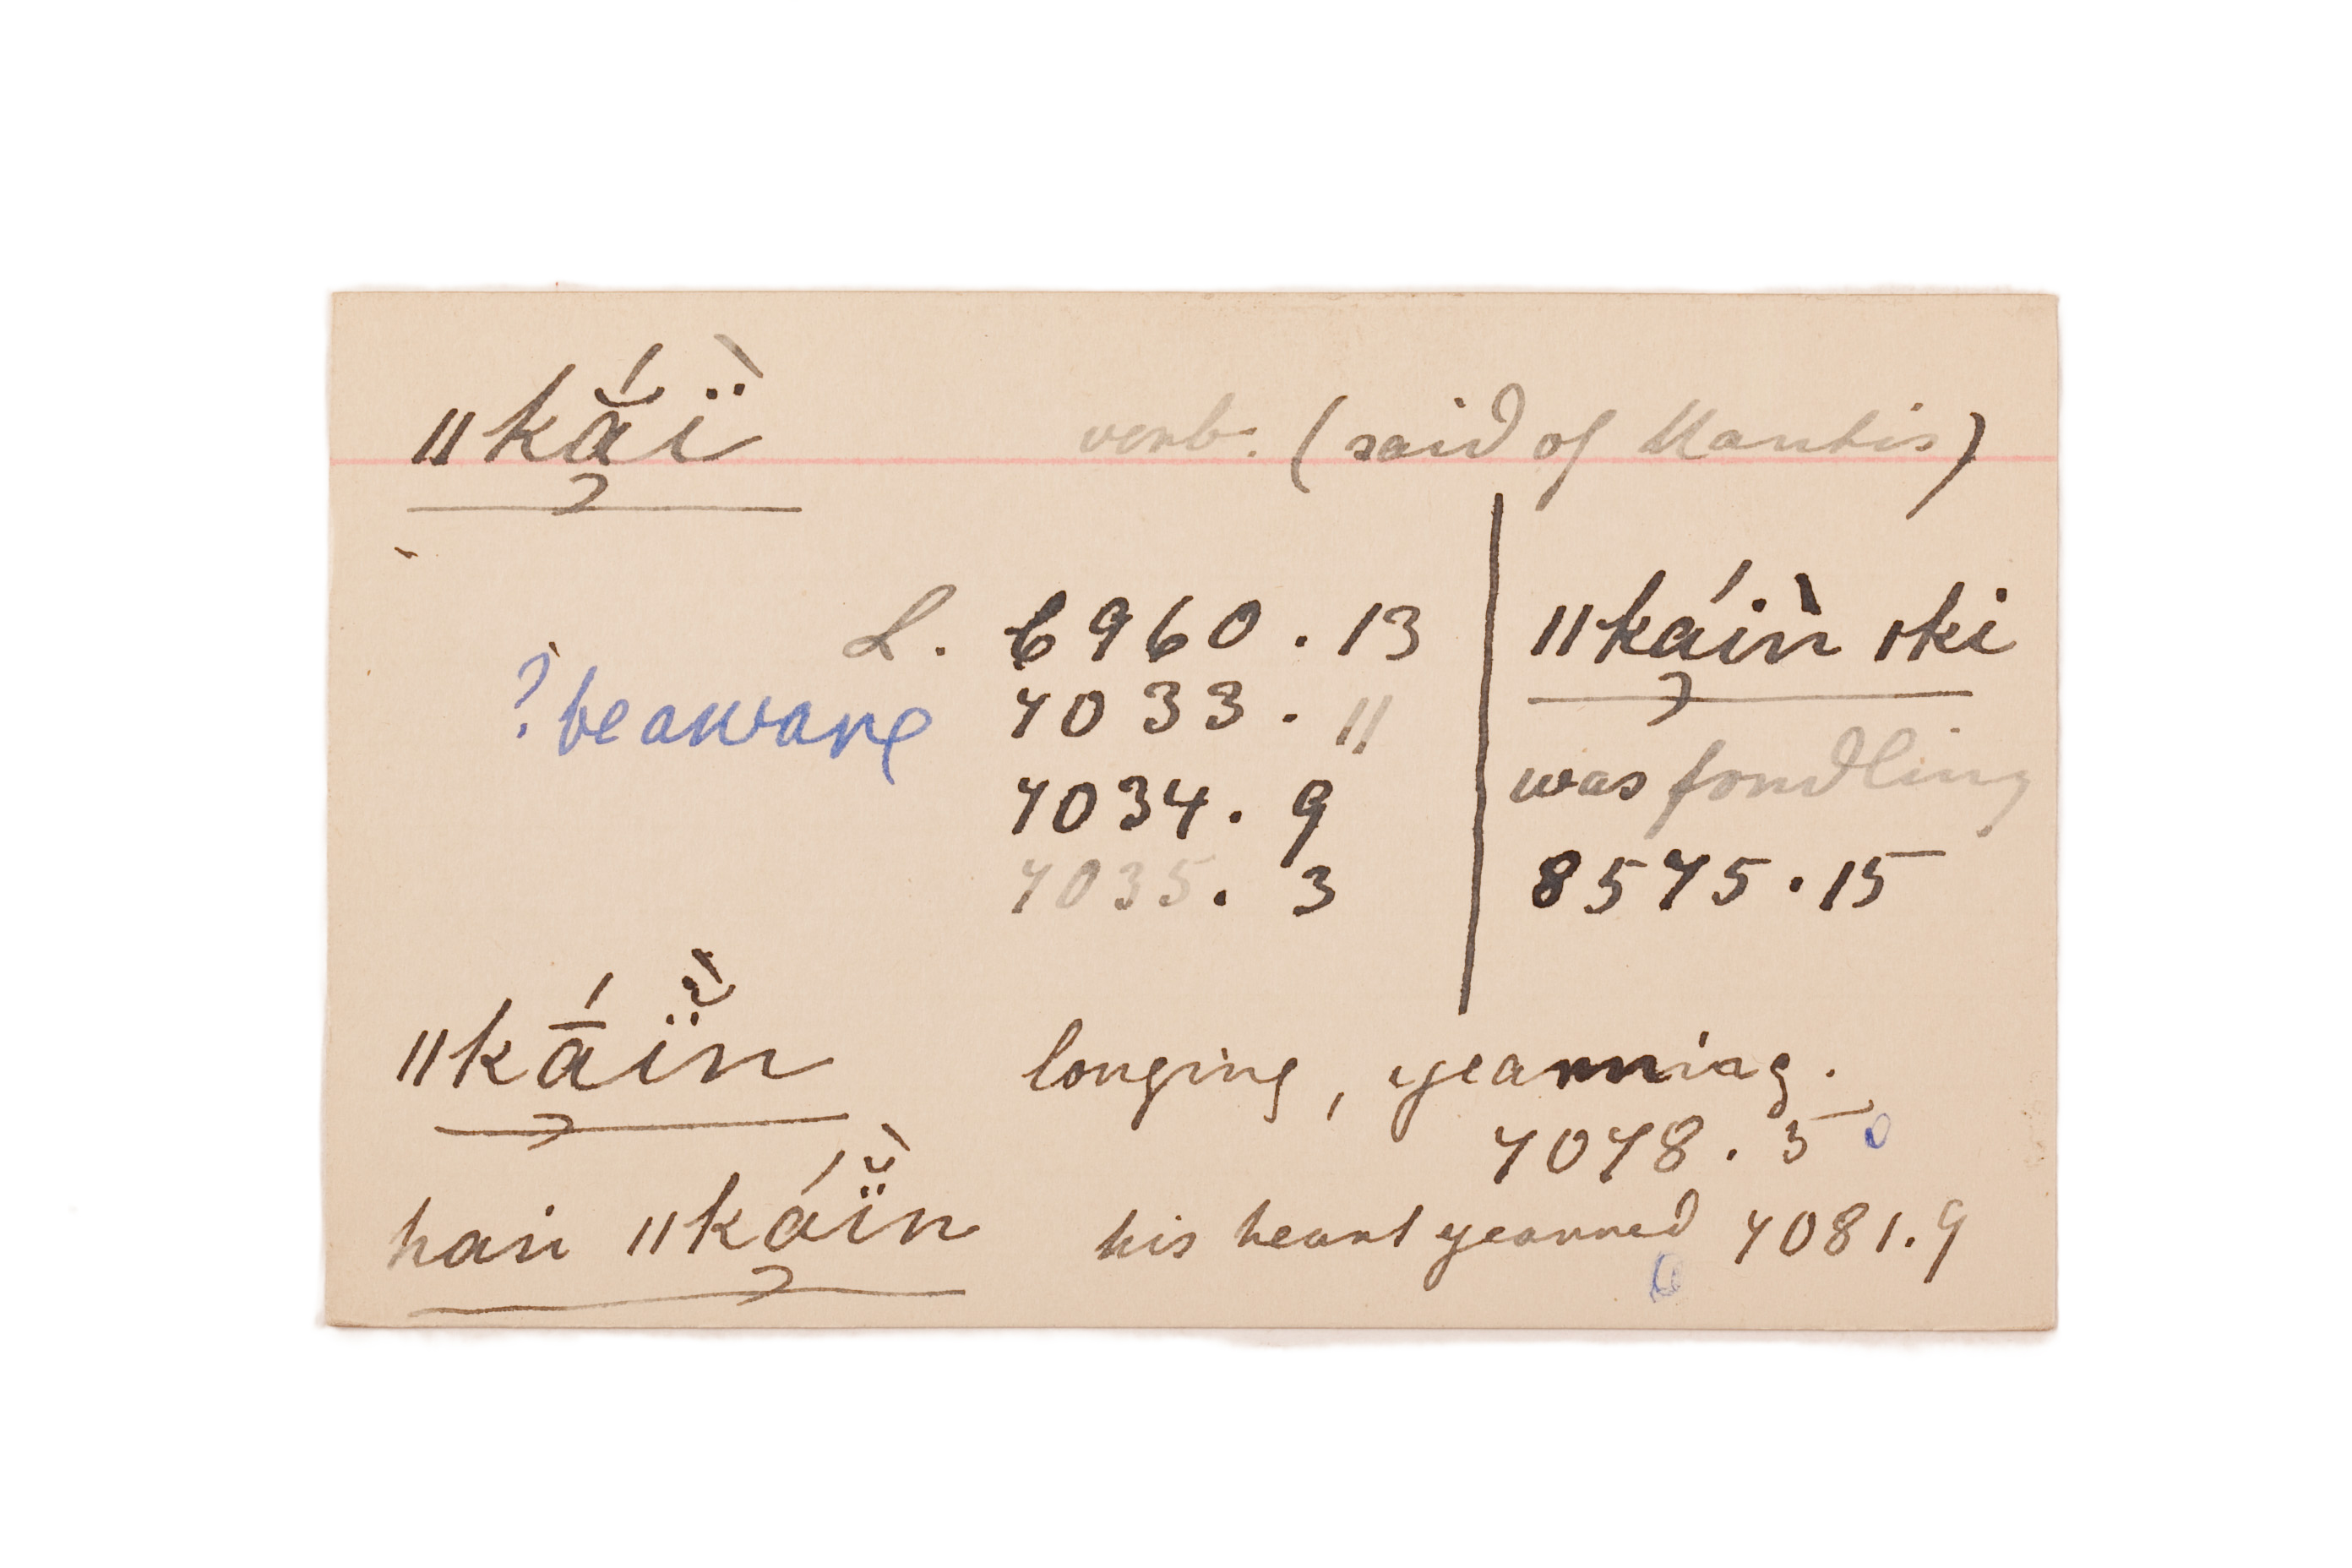 ǁkắï̀ verb. (said of Mantis)
L. 6960.13
? be aware 7033.11
7034.9
7035.3
ǁkáiǹ ǀki
was fondling
8575.15
ǁkā́ï̀n longing, yearning.
7078.5
han ǁkáï̀n his heart yearned 7081.9